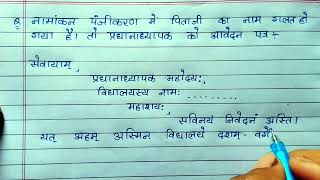 Q नामांकन पंजीकरण में पिताजी का नाम गलत हो
गया है। तो प्रधानाध्यापक को आवेदन पत्र :-
सेवायाम्,
प्रधानाध्यापक महोदयः,
विद्यालयस्य नामः ..........
महाशयः,
सविनयं निवेदनं अस्ति।
यत् अहम् अस्मिन विद्यालये दशम- वर्गे